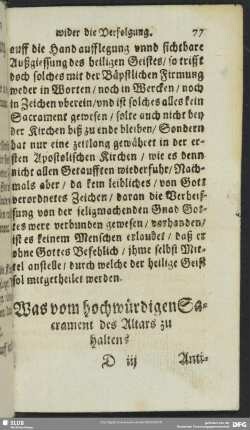 wider die Verfolgung. 77
auff die Handaufflegung vnnd sichtbare
Außgiessung des heiligen Geistes/ so trifft
doch solches mit der Bäpstlichen Firmung
weder in Worten/ noch in Wercken/ noch
in Zeichen vberein/ vnd ist solches alles kein
Sacrament gewesen/ solte auch nicht bey
der Kirchen biß zu ende bleiben/ Sondern
hat nur eine zeitlang gewähret in der er-
sten Apostolischen Kirchen/ wie es denn
nicht allen Getaufften wiederfuhr/ Nach-
mals aber/ da kein leibliches/ von Gott
verordnetes Zeichen/ daran die Verheis-
sung von der seligmachenden Gnad Got-
tes were verbunden gewesen/ vorhanden/
ist es keinem Menschen erlaubet/ daß er
ohne Gottes Befehlich/ jhme selbst Mit-
tel anstelle/ durch welche der heilige Geist
sol mitgetheilet werden.
Was vom hochwürdigen Sa-
crament des Altars zu
halten?
D iij Anti-
SLUB